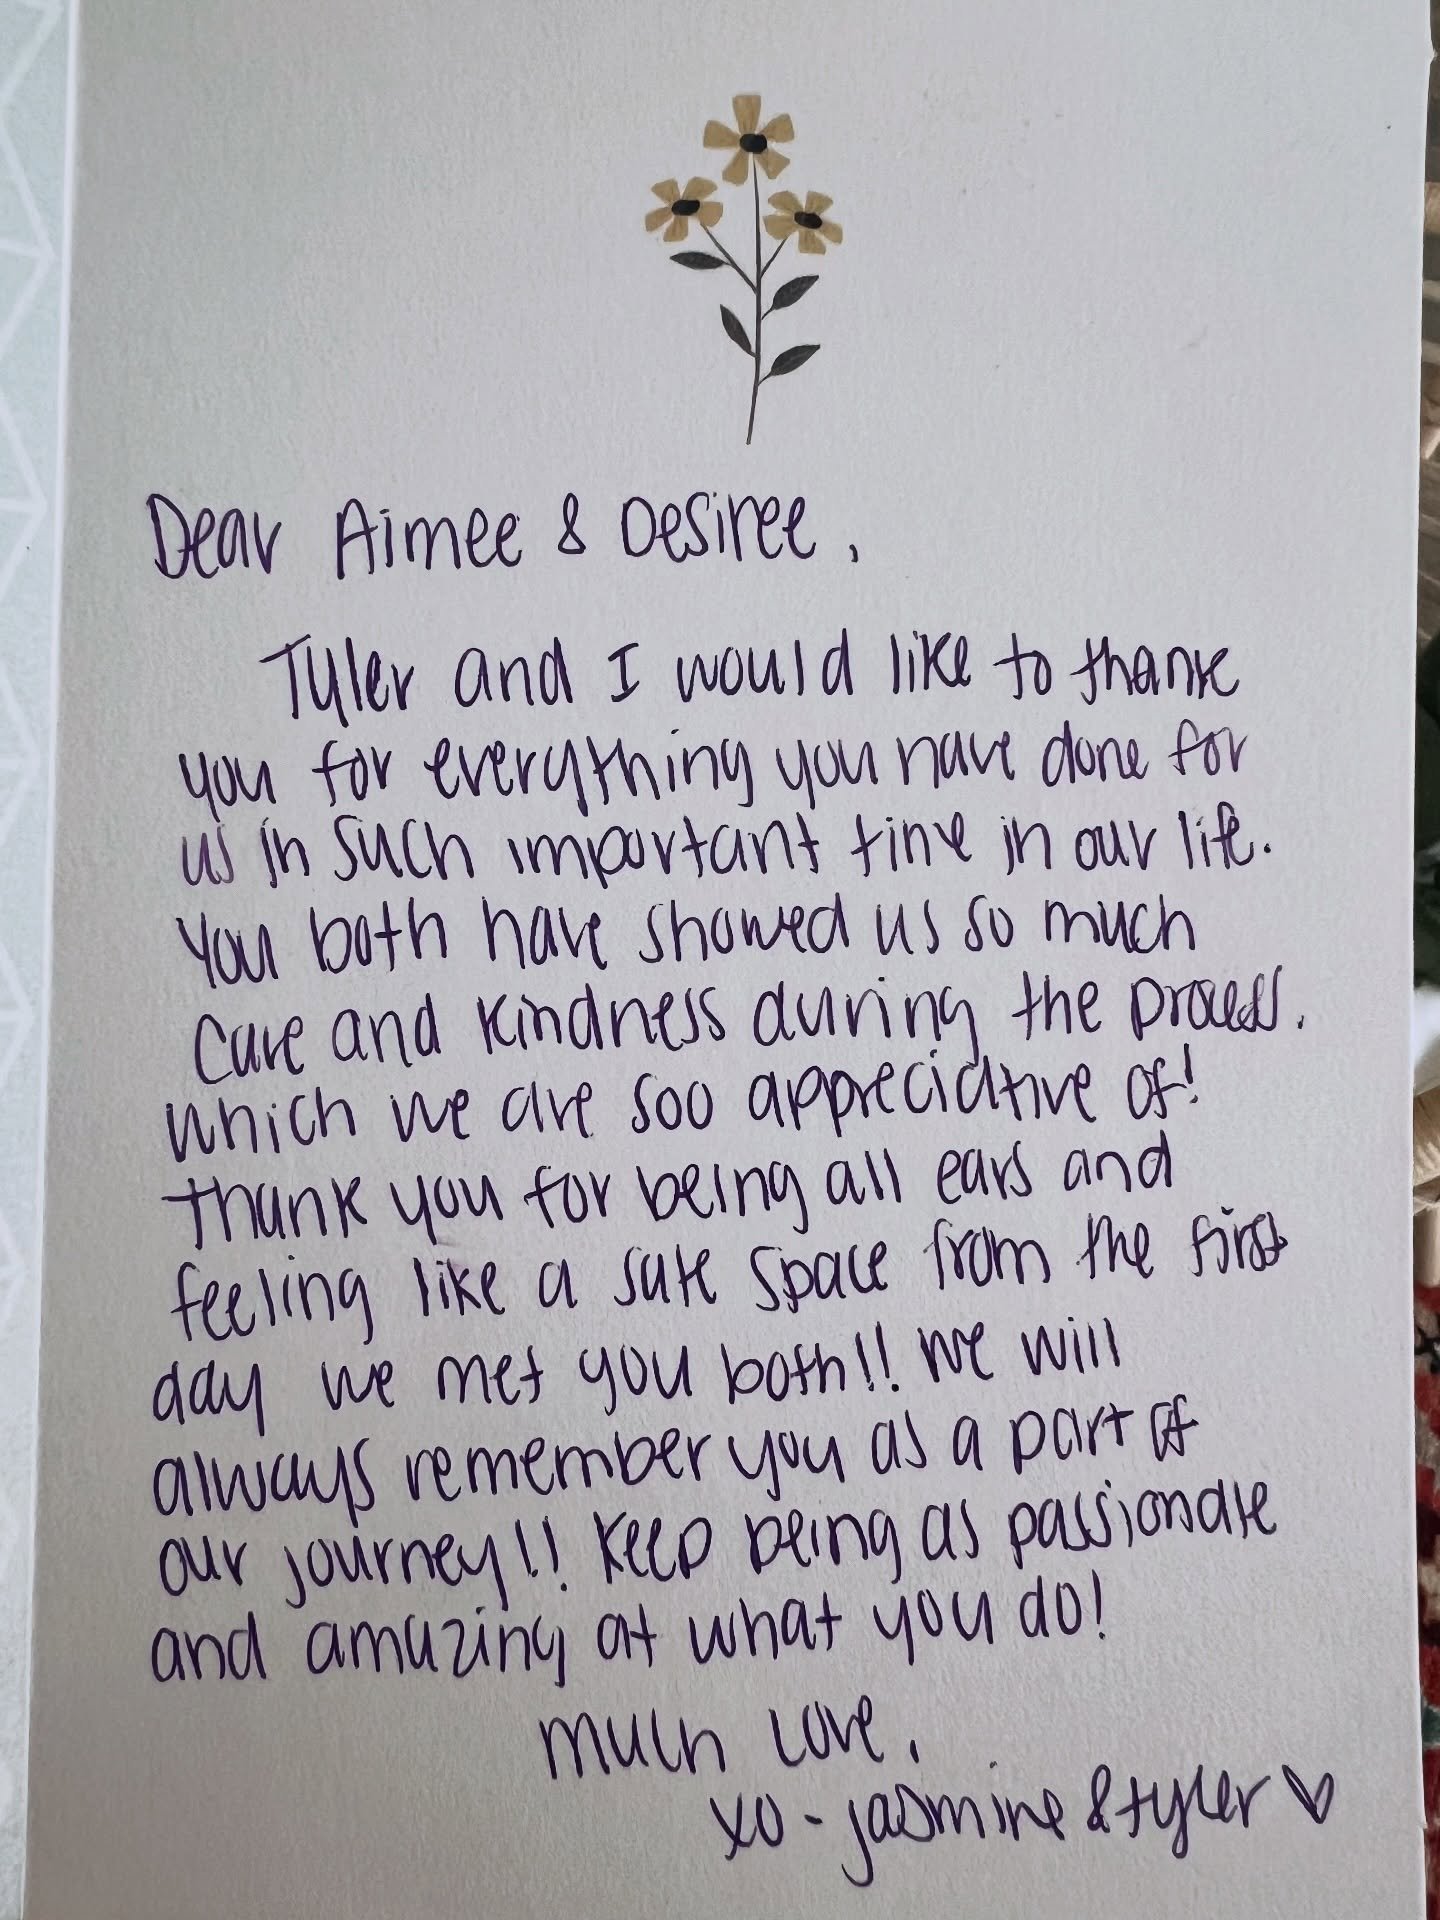 Dear Aimee & Desiree,
Tyler and I would like to thank
you for everything you have done for
us in such important time in our life.
You both have showed us so much
care and kindness during the process.
which we are soo appreciative of!
Thank you for being all ears and
feeling like a safe space from the first
day we met you both!! We will
always remember you as a part of
our journey!! Keep being as passionate
and amazing at what you do!
much love,
xo - Jasmine & Tyler ♡